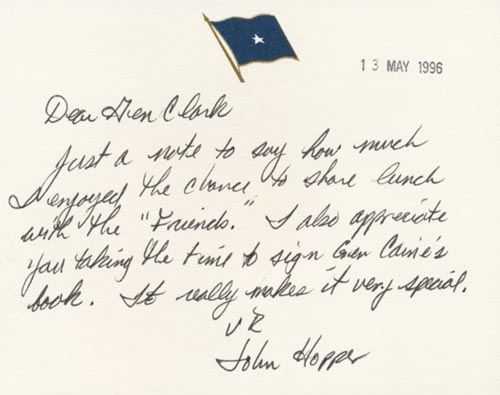 13 MAY 1996
Dear Gen Clark
Just a note to say how much
I enjoyed the chance to share lunch
with the "Friends." I also appreciate
you taking the time to sign Gen Caine's
book. It really makes it very special.
VR
John Hopper